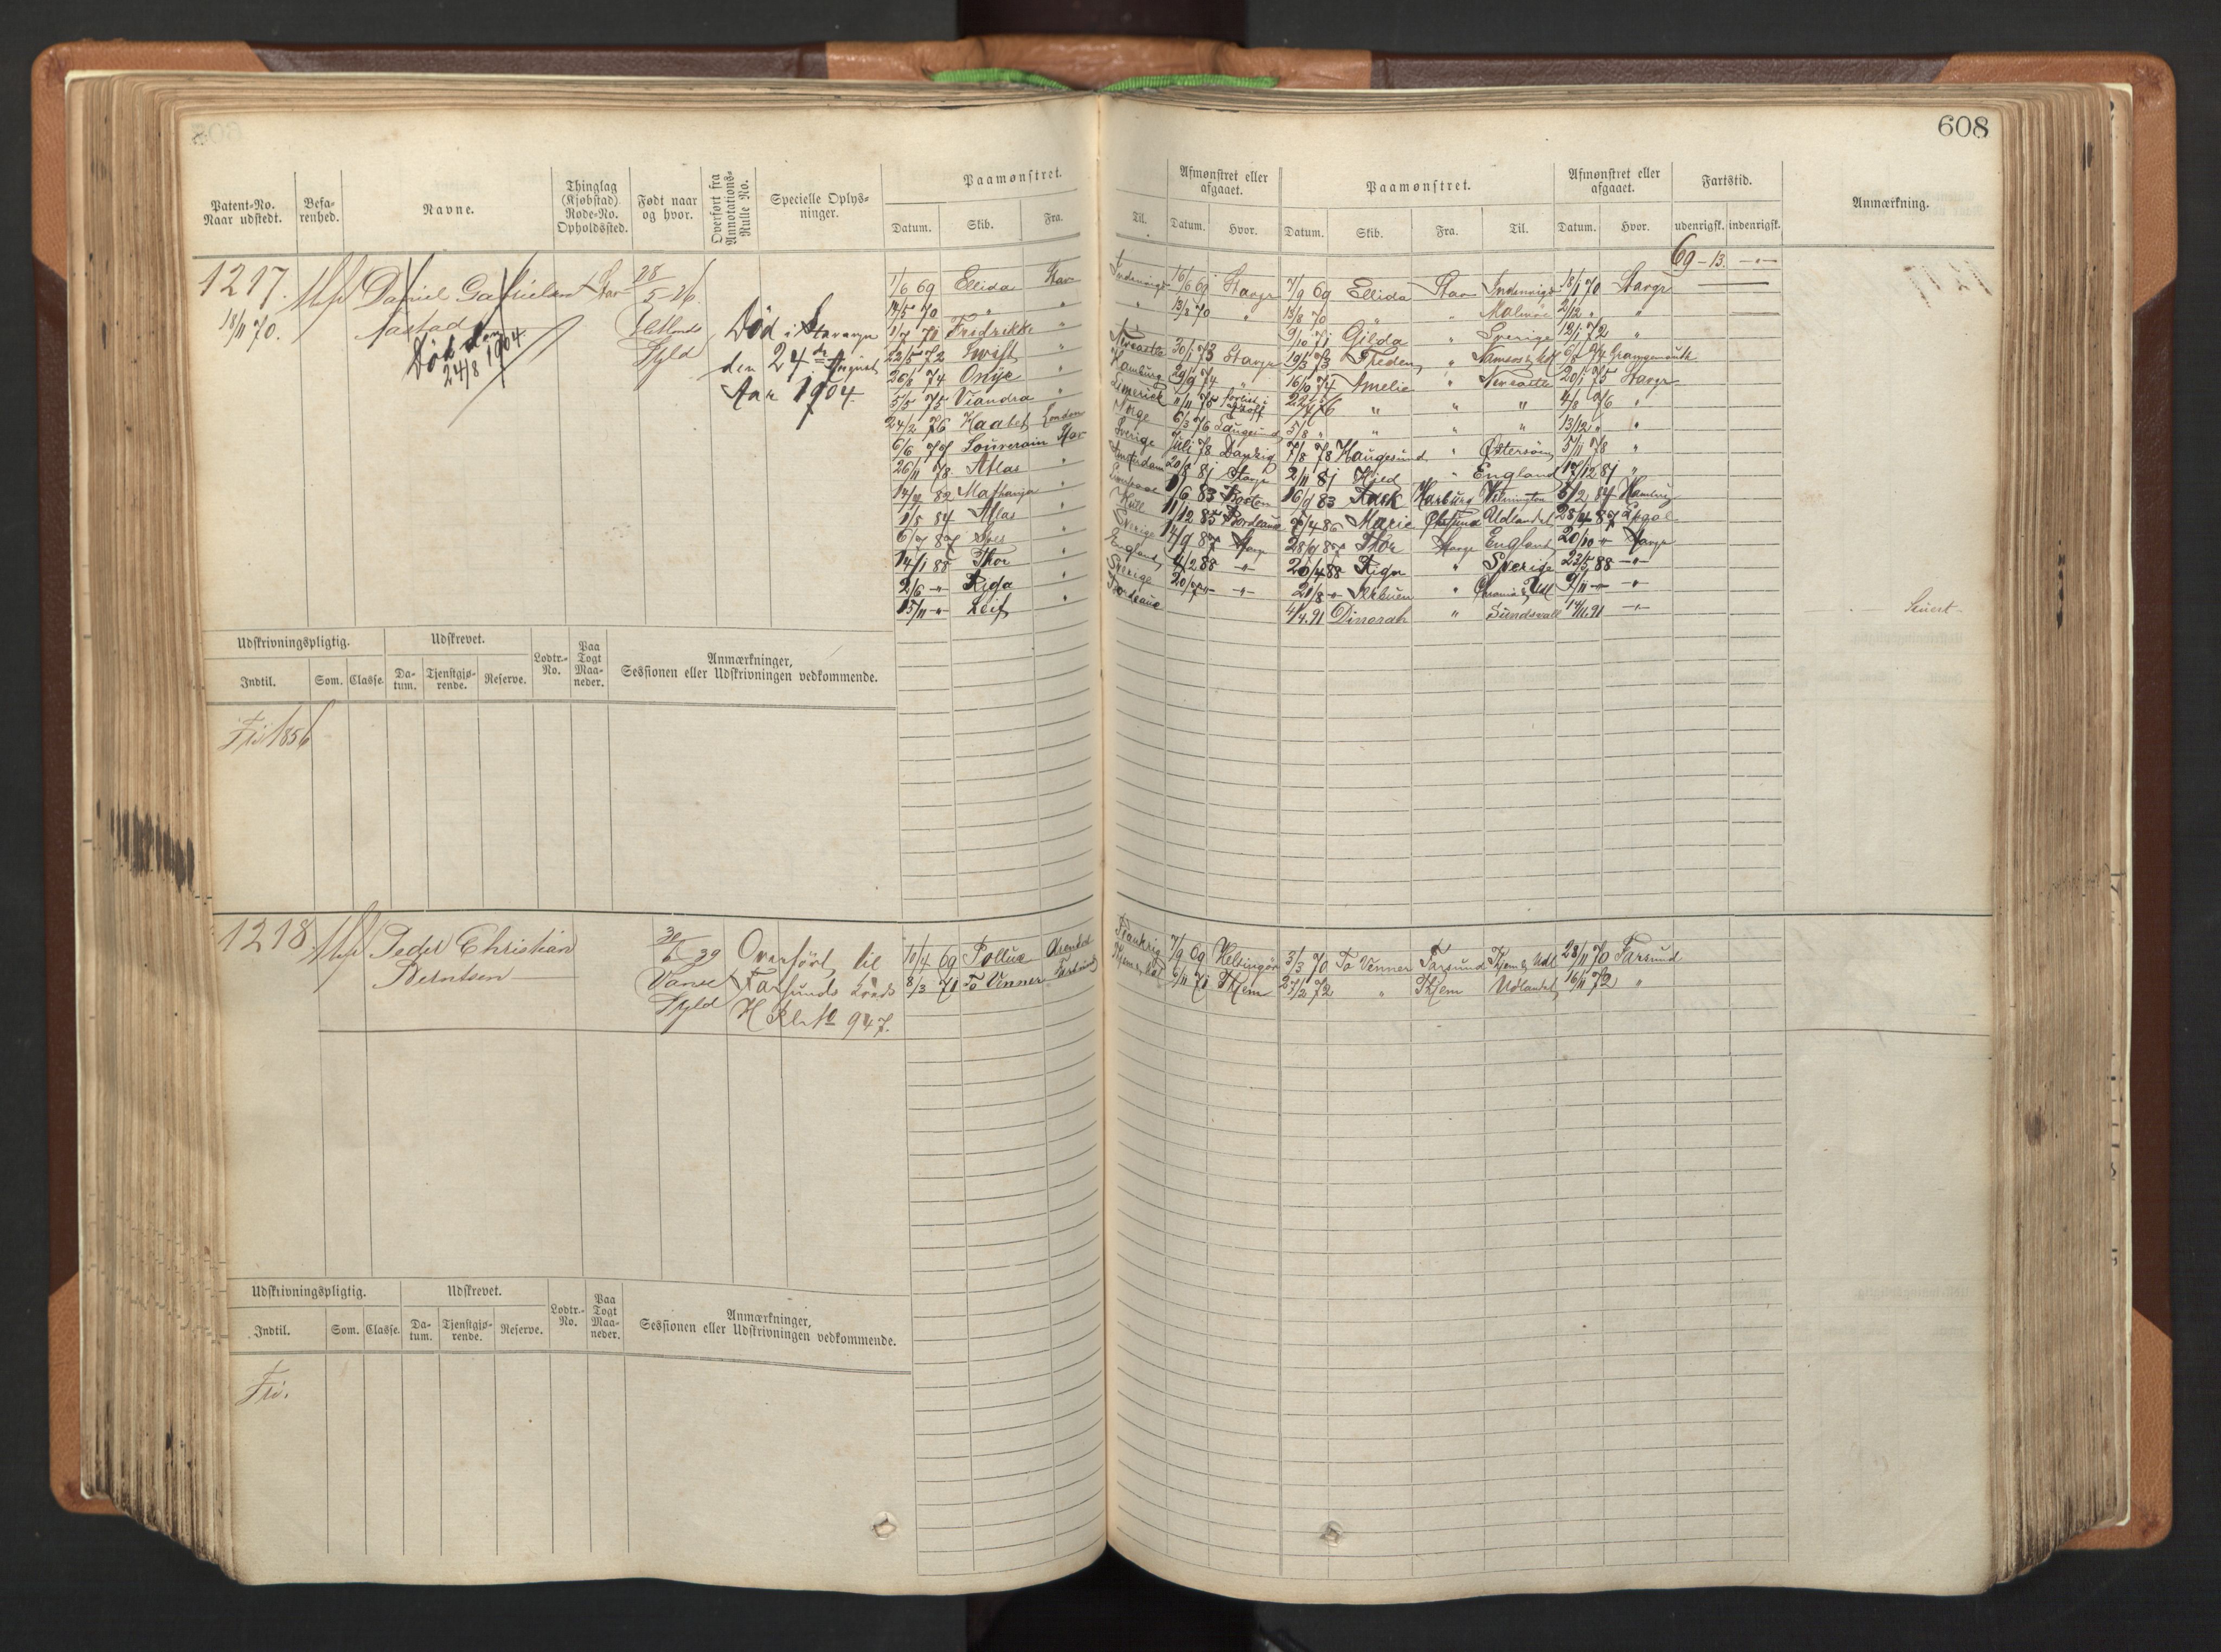 608
Patent-No. Naar udstedt.
Befarenhed.
Navne.
Thinglag (Kjøbstad) Rode-No. Opholdssted.
Født naar og hvor.
Overført fra Annotations-Rulle No.
Specielle Oplysninger.
Paamønstret.
Datum. Skib. Fra. Til.
Afmønstret eller afgaaet.
Datum. Hvor.
Paamønstret.
Datum. Skib. Fra. Til.
Afmønstret eller afgaaet.
Datum. Hvor.
Fartstid.
udenrigsk. indenrigsk.
Anmærkning.
69-13.
1217. Daniel Gabrielsen Stav 28/5-26
18/11 70. Aastad
Død den 24/8 1904
Skyld
Død i Stavanger
den 24de August
Aar 1904.
1/6 69 Ellida Stav Indenrigs 16/6 69 Stavgr 7/9 69 Ellida Stav Indenrigs 18/1 70 Stavgr
14/5 70 " " " 13/8 70 " 13/8 70 " " Malmöe 2/12 " "
Fredrikke " 9/10 71 Gilda " Sverige 12/1 72 "
22/5 72 Swift " Newcastle 30/1 73 Stavgr 19/5 73 Freden " Grangemouth
74 Onyx " Hamburg 29/9 74 " 16/10 74 Amelie " Newcastle 20/1 75 Stavgr
5/5 75 Viandra " Limerick 11/11 75 forlist i " " " 4/8 76 "
24/2 76 Haabet London 6/3 76 Laugesund 5/8 " " " " 13/12 " "
6/6 77 Souverain Stav Sverige Juli 78 Danzig 7/8 78 Haugesund " Østersøen 5/11 78 "
26/11 78 Atlas " Amsterdam Stavgr 2/11 81 Hjed " England 17/12 81 "
82 Mathanja " 83 Boston 16/9 83 Rask Harburg Wilmington 5/2 84 Hamburg
1/5 84 Atlas " Hull 11/12 85 Bordeaux 7/4 86 Marie Udlandet
6/7 87 " Sverige 14/9 87 Stavgr 28/9 87 Thor Stavgr England 20/10 " Stavgr
14/1 88 Thor " England 4/2 88 -"- 20/4 88 Riga " Sverige 23/5 88 -"-
2/6 -"- Riga " Sverige 20/7 -"- -"- 21/8 -"- " 9/11 -"- -"-
15/11 -"- Leif " Bordeaux 4/4.91 Dinorah " Sundsvall 14/11.91 -"-
Udskrivningspligtig. Udskrevet. Lodtr.-No. Paa Togt Maaneder. Anmærkninger, Sessionen eller Udskrivningen vedkommende.
Indtil. Som. Classe. Datum. Tjenstgjørende. Reserve.
Fri 1856
1218. Peder Christian 30/6 39 Overført til
Berntsen Vanse Farsunds Kreds
Skyld H Rl. No 947.
10/4 69 Pollux Arendal Frankrig 7/9 69 Helsingør 3/3 70 To Venner Farsund Thjem & Udl 28/11 70 Farsund
8/3 71 To Venner Farsund 6/11 71 Thjem 27/2 72 " Thjem Udlandet 16/11 72 "
Udskrivningspligtig. Udskrevet. Lodtr.-No. Paa Togt Maaneder. Anmærkninger, Sessionen eller Udskrivningen vedkommende.
Indtil. Som. Classe. Datum. Tjenstgjørende. Reserve.
Fri.